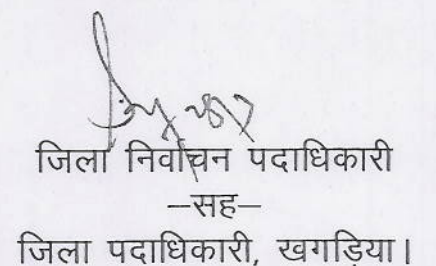 जिला निर्वाचन पदाधिकारी
–सह–
जिला पदाधिकारी, खगड़िया।